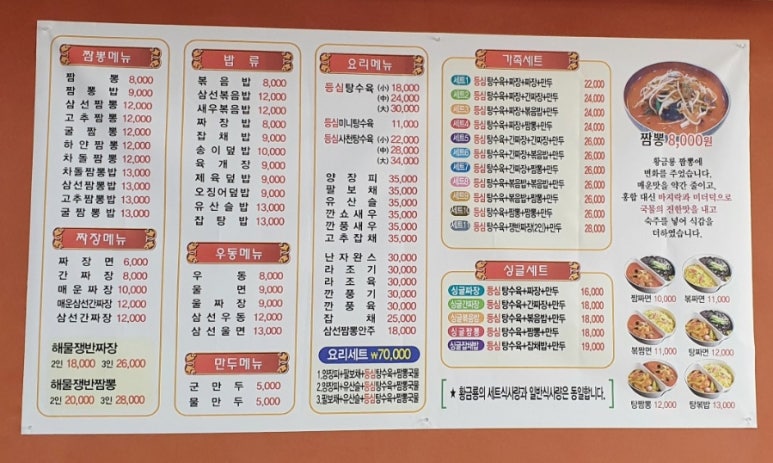 짬뽕메뉴
짬 뽕 8,000
짬 뽕 밥 9,000
삼선짬뽕 12,000
고추짬뽕 12,000
굴 짬 뽕 12,000
하얀짬뽕 12,000
차돌짬뽕 12,000
차돌짬뽕밥 13,000
삼선짬뽕밥 13,000
고추짬뽕밥 13,000
굴 짬 뽕 밥 13,000
짜장메뉴
짜 장 면 6,000
간 짜 장 8,000
매운짜장 10,000
매운삼선간짜장 12,000
삼선간짜장 12,000
해물쟁반짜장
2인 18,000 3인 26,000
해물쟁반짬뽕
2인 20,000 3인 28,000
밥 류
볶 음 밥 8,000
삼선볶음밥 12,000
새우볶음밥 12,000
짜 장 밥 8,000
잡 채 밥 9,000
송이덮밥 10,000
육 개 장 9,000
제육덮밥 10,000
오징어덮밥 10,000
유산슬밥 13,000
잡 탕 밥 13,000
우동메뉴
우 동 8,000
울 면 9,000
울 짜 장 9,000
삼선우동 12,000
삼선울면 13,000
만두메뉴
군 만 두 5,000
물 만 두 5,000
요리메뉴
등심탕수육 (小) 18,000
(中) 24,000
(大) 30,000
등심미니탕수육 11,000
등심사천탕수육 (小) 22,000
(中) 28,000
(大) 34,000
양 장 피 35,000
팔 보 채 35,000
유 산 슬 35,000
깐쇼새우 35,000
깐풍새우 35,000
고추잡채 35,000
난자완스 30,000
라 조 기 30,000
라 조 육 30,000
깐 풍 기 30,000
깐 풍 육 30,000
잡 채 25,000
삼선짬뽕안주 18,000
요리세트 ₩70,000
1.양장피+팔보채+등심탕수육+짬뽕국물
2.양장피+유산슬+등심탕수육+짬뽕국물
3.팔보채+유산슬+등심탕수육+짬뽕국물
가족세트
세트1 등심탕수육+짜장+짜장+만두 22,000
세트2 등심탕수육+짜장+간짜장+만두 24,000
세트3 등심탕수육+짜장+볶음밥+만두 24,000
세트4 등심탕수육+짜장+짬뽕+만두 24,000
세트5 등심탕수육+간짜장+간짜장+만두 26,000
세트6 등심탕수육+간짜장+볶음밥+만두 26,000
세트7 등심탕수육+간짜장+짬뽕+만두 26,000
세트8 등심탕수육+볶음밥+볶음밥+만두 26,000
세트9 등심탕수육+볶음밥+짬뽕+만두 26,000
세트10 등심탕수육+짬뽕+짬뽕+만두 26,000
세트11 등심탕수육+쟁반짜장(2인)+만두 28,000
싱글세트
싱글짜장 등심탕수육+짜장+만두 16,000
싱글간짜장 등심탕수육+간짜장+만두 18,000
싱글볶음밥 등심탕수육+볶음밥+만두 18,000
싱글짬뽕 등심탕수육+짬뽕+만두 18,000
싱글잡채밥 등심탕수육+잡채밥+만두 19,000
★ 황금룡의 세트식사량과 일반식사량은 동일합니다.
짬뽕 8,000원
황금룡 짬뽕에
변화를 주었습니다.
매운맛을 약간 줄이고,
홍합 대신 바지락과 미더덕으로
국물의 진한맛을 내고
숙주를 넣어 식감을
더하였습니다.
짬짜면 10,000 볶짜면 11,000
볶짬면 11,000 탕짜면 12,000
탕짬뽕 12,000 탕볶밥 13,000